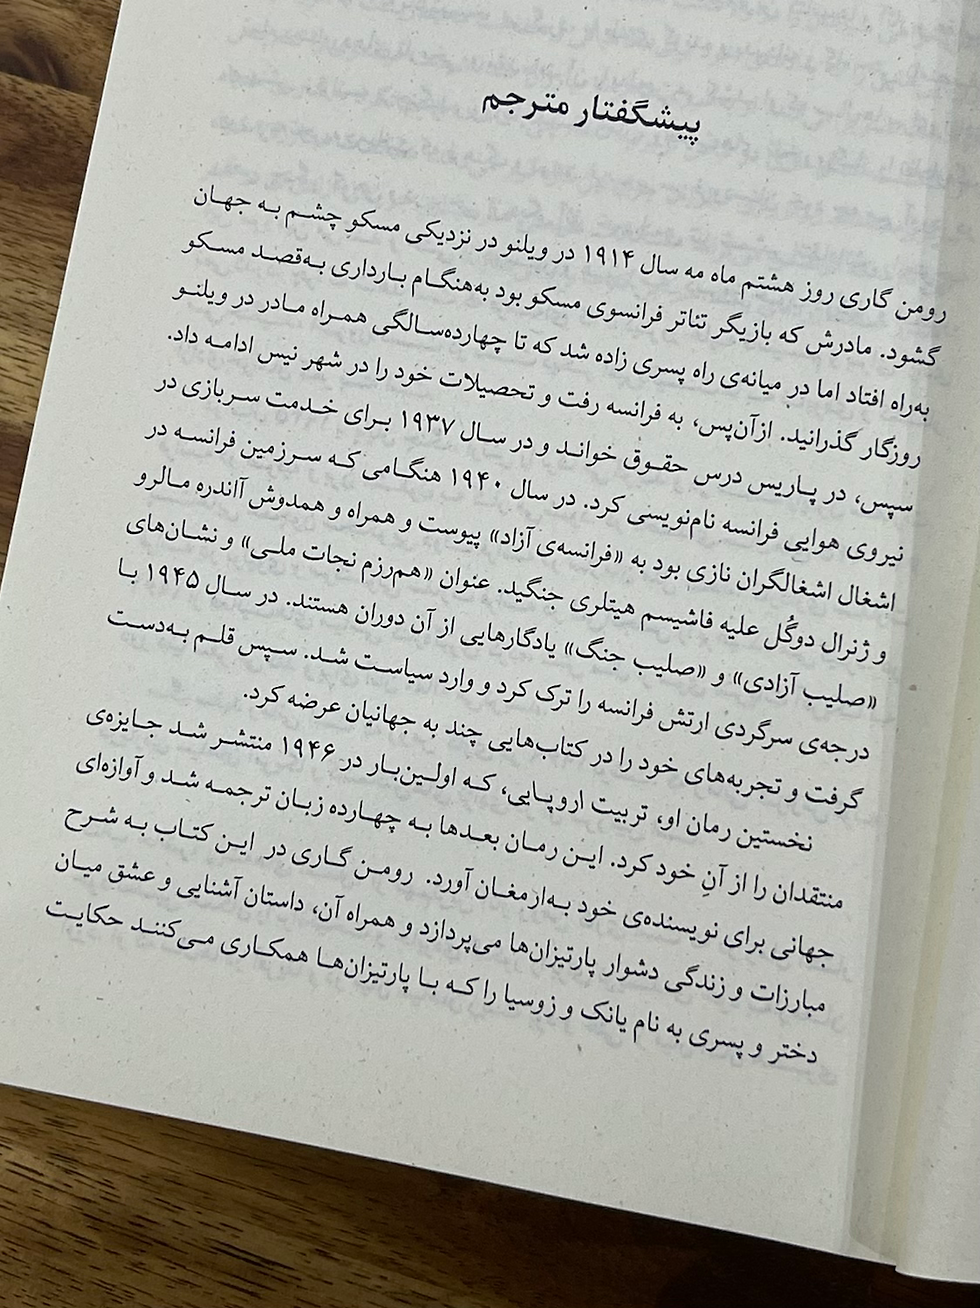 پیشگفتار مترجم
رومن گاری روز هشتم ماه مه سال ۱۹۱۴ در ویلنو در نزدیکی مسکو چشم به جهان
گشود. مادرش که بازیگر تئاتر فرانسوی مسکو بود به‌هنگام بارداری به‌قصد مسکو
به‌راه افتاد اما در میانه‌ی راه پسری زاده شد که تا چهارده‌سالگی همراه مادر در ویلنو
روزگار گذرانید. ازآن‌پس، به فرانسه رفت و تحصیلات خود را در شهر نیس ادامه داد.
سپس، در پاریس درس حقوق خواند و در سال ۱۹۳۷ برای خدمت سربازی در
نیروی هوایی فرانسه نام‌نویسی کرد. در سال ۱۹۴۰ هنگامی که سرزمین فرانسه در
اشغال اشغالگران نازی بود به «فرانسه‌ی آزاد» پیوست و همراه و همدوش آاندره مالرو
و ژنرال دوگُل علیه فاشیسم هیتلری جنگید. عنوان «هم‌رزم نجات ملی» و نشان‌های
«صلیب آزادی» و «صلیب جنگ» یادگارهایی از آن دوران هستند. در سال ۱۹۴۵ با
درجه‌ی سرگردی ارتش فرانسه را ترک کرد و وارد سیاست شد. سپس قلم به‌دست
گرفت و تجربه‌های خود را در کتاب‌هایی چند به جهانیان عرضه کرد.
نخستین رمان او، تربیت اروپایی، که اولین‌بار در ۱۹۴۶ منتشر شد جایزه‌ی
منتقدان را از آنِ خود کرد. این رمان بعدها به چهارده زبان ترجمه شد و آوازه‌ای
جهانی برای نویسنده‌ی خود به‌ارمغان آورد. رومن گاری در این کتاب به شرح
مبارزات و زندگی دشوار پارتیزان‌ها می‌پردازد و همراه آن، داستان آشنایی و عشق میان
دختر و پسری به نام یانک و زوسیا را که با پارتیزان‌ها همکاری می‌کنند حکایت